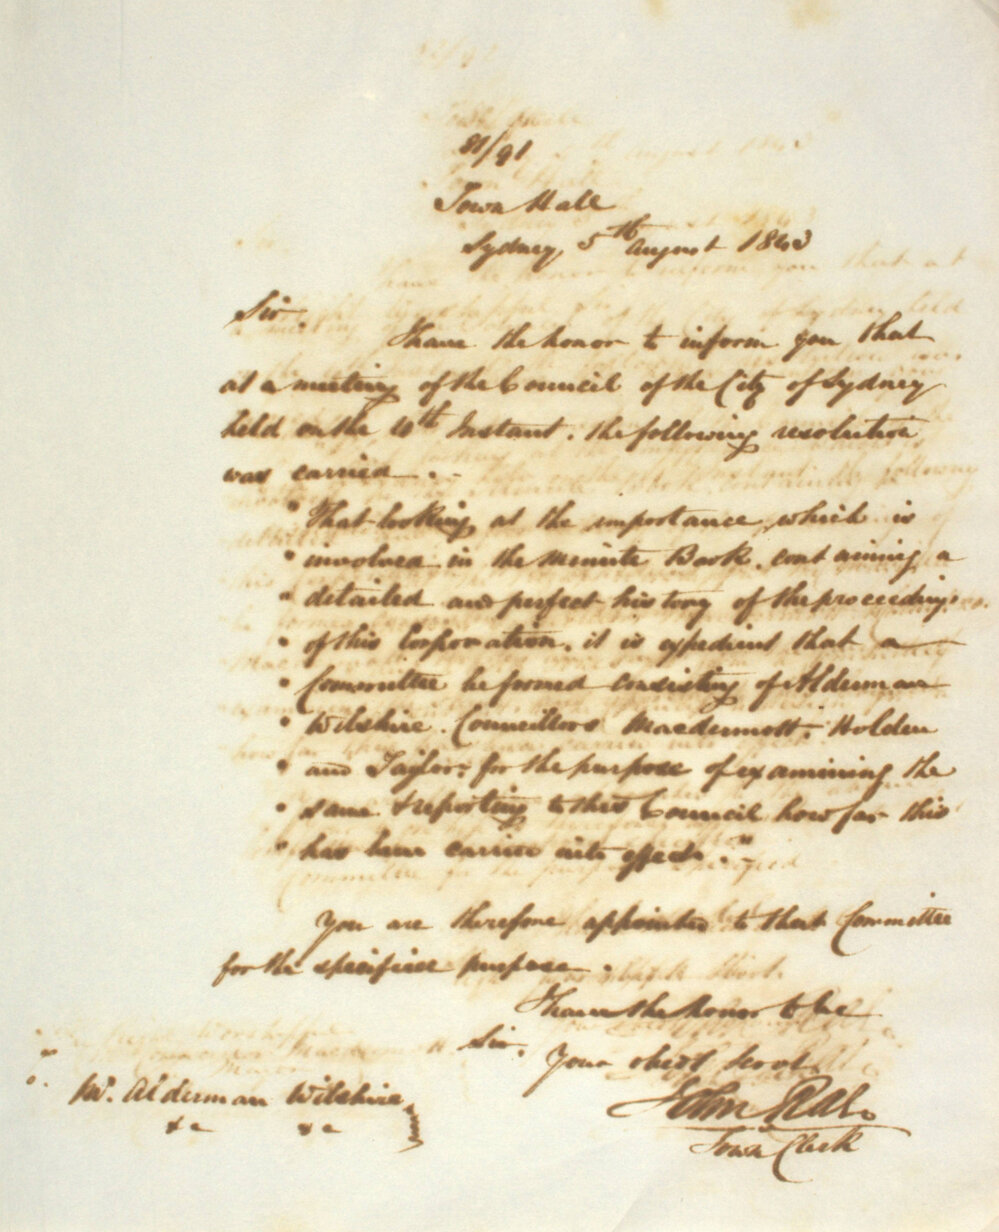 81/91
Town Hall
Sydney, 5th August 1843
Sir,
I have the honor to inform you that
at a meeting of the Council of the City of Sydney
held on the 4th Instant, the following resolution
was carried.
" That looking at the importance, which is
" involved in the Minute Book, containing a
" detailed and perfect history of the proceedings
" of this Corporation, it is expedient that a
" Committee be formed consisting of Alderman
" Wilshire. Councillors Macdermott, Holden
" and Taylor, for the purpose of examining the
" same & reporting to this Council how far this
" has been carried into effect."
You are therefore appointed to that Committee
for the specified purpose.
I have the honor to be
Sir,
Your obedt servt
John Rae
Town Clerk
To.
Mr. Alderman Wilshire
&c &c